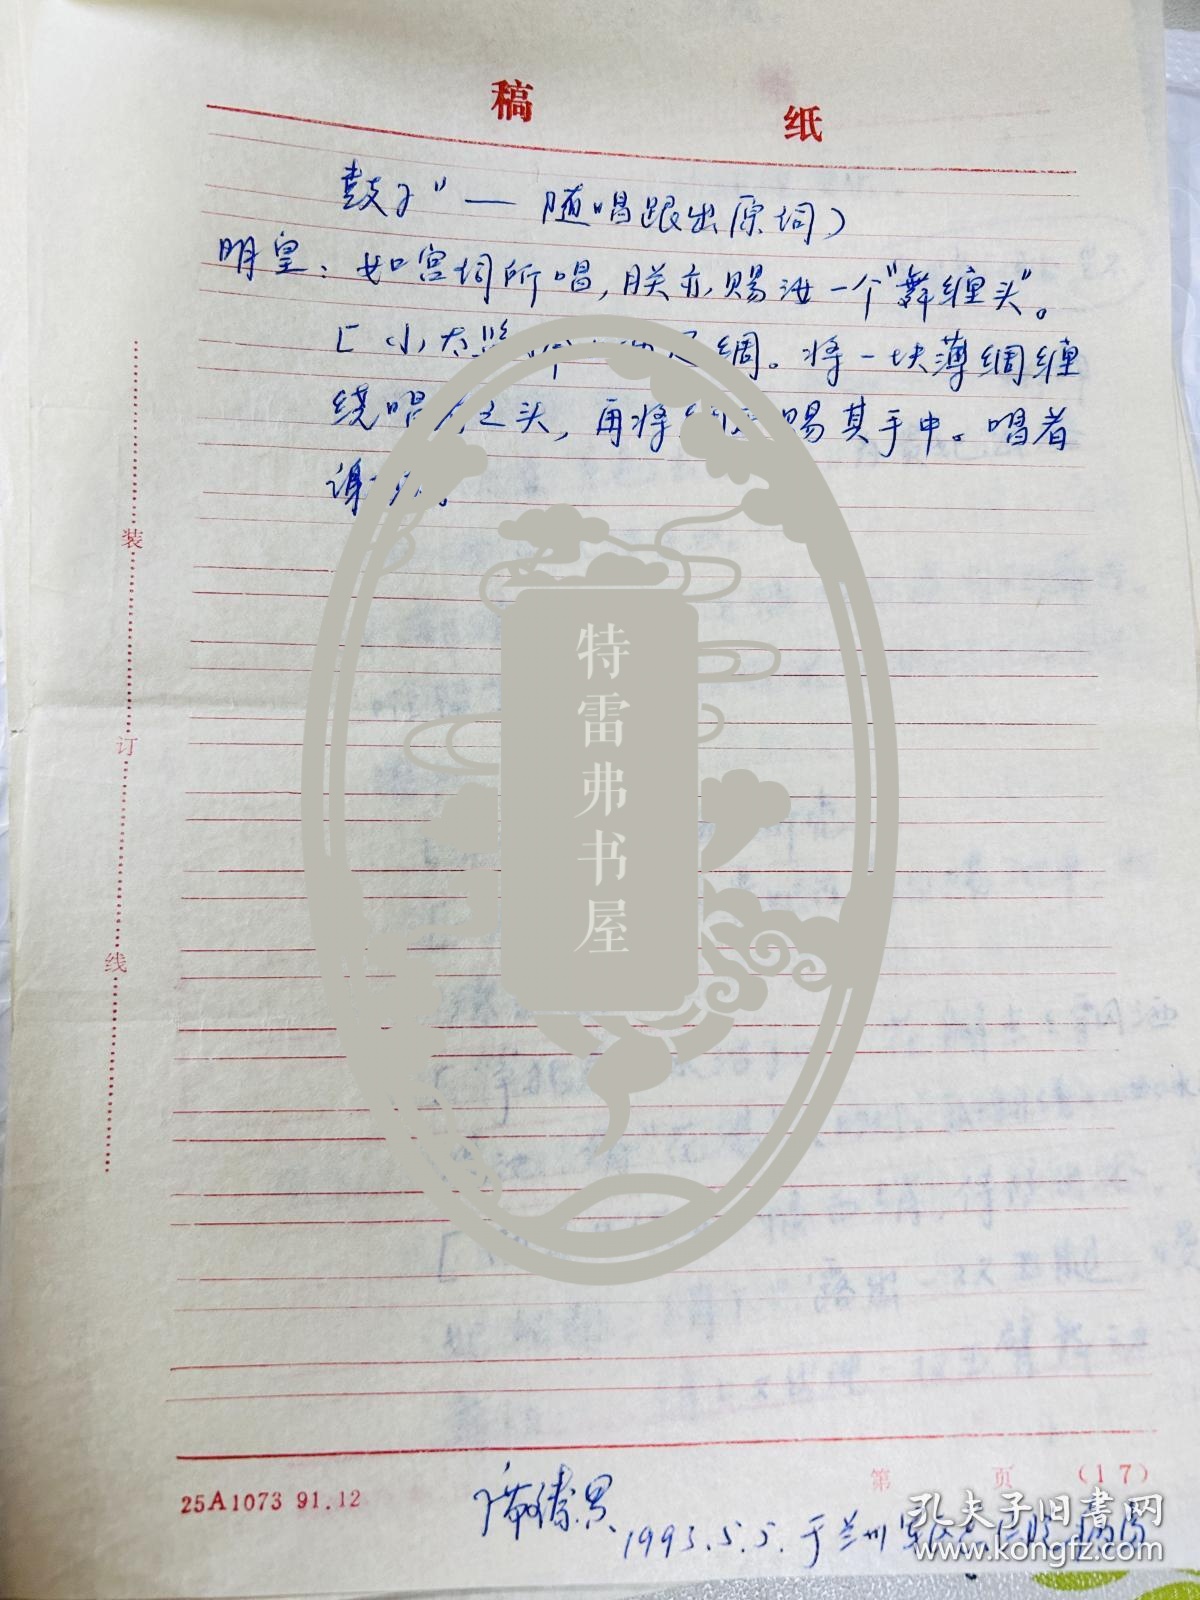 稿 纸
鼓子"— 随唱跟出原词)
明皇：如宫词所唱，朕亦赐汝一个"舞缠头"。
[小太监 绸。将一块薄绸缠
绕唱 之头，再将 赐其手中。唱者
谢
装
订
线
特雷弗书屋
25A1073 91.12
第 页 (17)
1993.5.5.于兰州军区总医院病房
孔夫子旧书网
www.kongfz.com